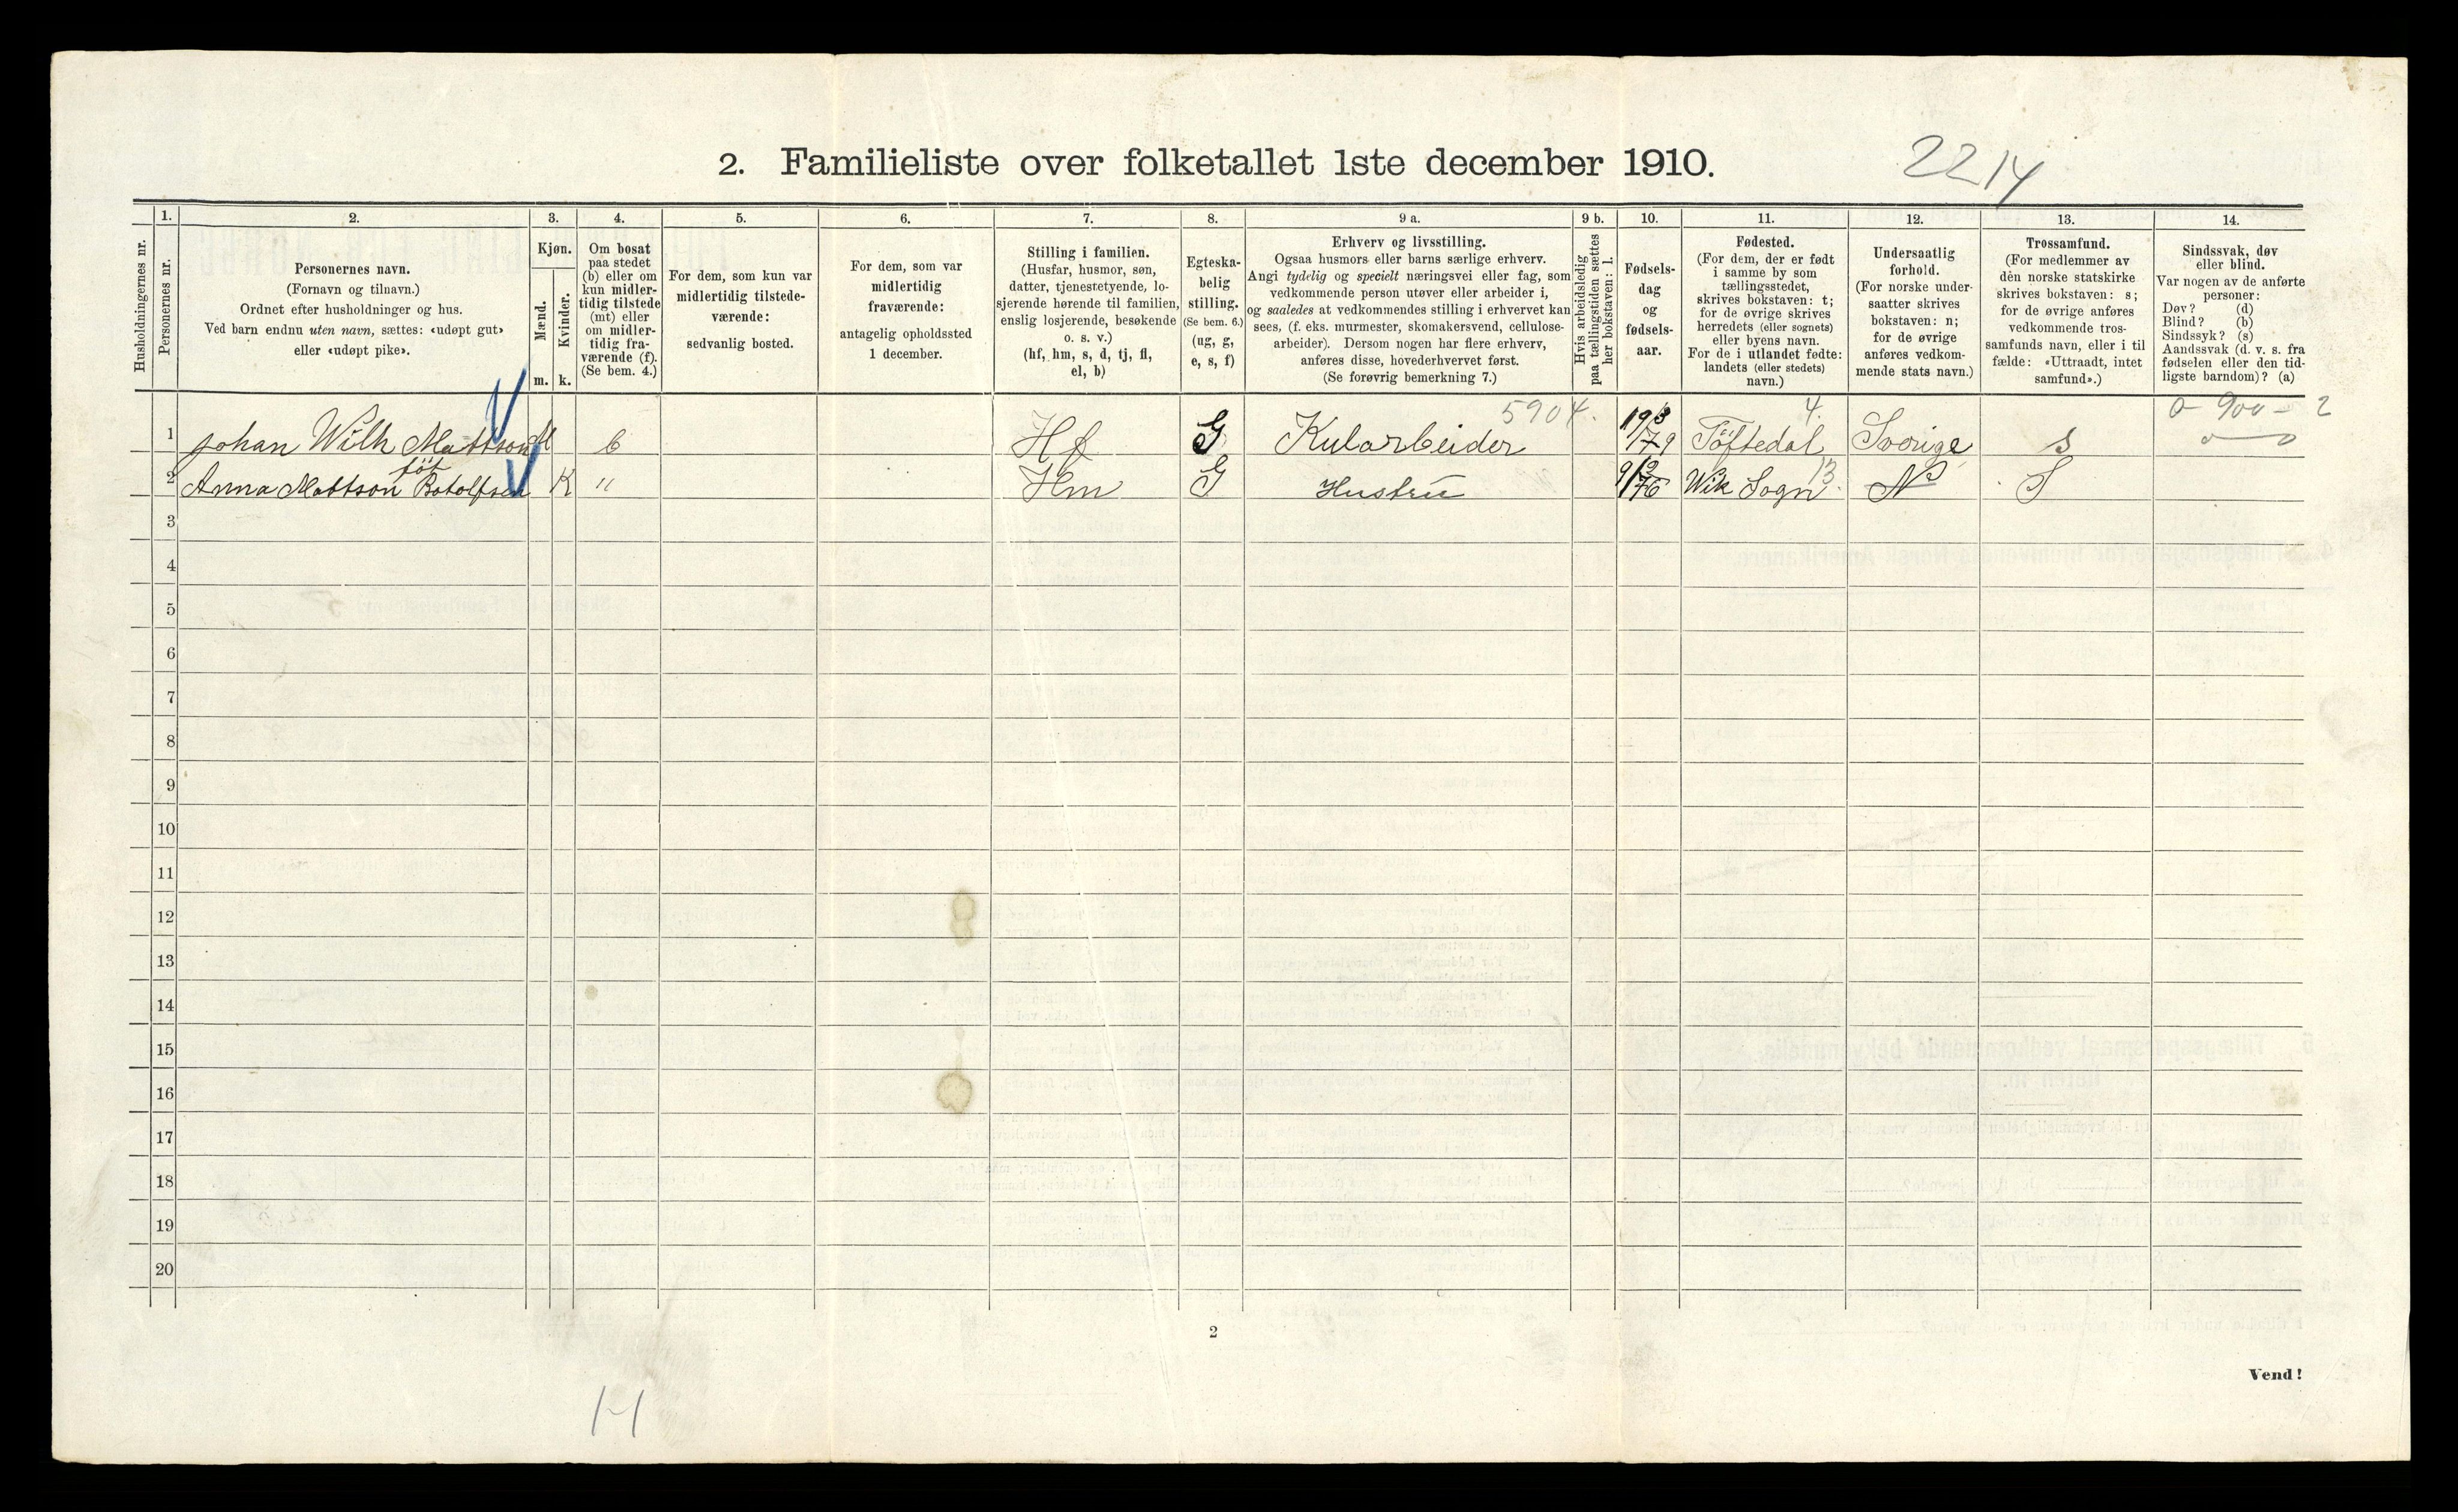 2. Familieliste over folketallet 1ste december 1910.
2214
Husholdningernes nr.
1.
Personernes nr.
2.
Personernes navn.
(Fornavn og tilnavn.)
Ordnet efter husholdninger og hus.
Ved barn endnu uten navn, sættes: «udøpt gut»
eller «udøpt pike».
3.
Kjøn.
Mænd.
m.
Kvinder.
k.
4.
Om bosat
paa stedet
(b) eller om
kun midler-
tidig tilstede
(mt) eller
om midler-
tidig fra-
værende (f).
(Se bem. 4.)
5.
For dem, som kun var
midlertidig tilstede-
værende:
sedvanlig bosted.
6.
For dem, som var
midlertidig
fraværende:
antagelig opholdssted
1 december.
7.
Stilling i familien.
(Husfar, husmor, søn,
datter, tjenestetyende, lo-
sjerende hørende til familien,
enslig losjerende, besøkende
o. s. v.)
(hf, hm, s, d, tj, fl,
el, b)
8.
Egteska-
belig
stilling.
(Se bem. 6.)
(ug, g,
e, s, f)
9 a.
Erhverv og livsstilling.
Ogsaa husmors eller barns særlige erhverv.
Angi tydelig og specielt næringsvei eller fag, som
vedkommende person utøver eller arbeider i,
og saaledes at vedkommendes stilling i erhvervet kan
sees, (f. eks. murmester, skomakersvend, cellulose-
arbeider). Dersom nogen har flere erhverv,
anføres disse, hovederhvervet først.
(Se forøvrig bemerkning 7.)
9 b.
Hvis arbeidsledig
paa tællingstiden sættes
her bokstaven: l.
10.
Fødsels-
dag
og
fødsels-
aar.
11.
Fødested.
(For dem, der er født
i samme by som
tællingsstedet,
skrives bokstaven: t;
for de øvrige skrives
herredets (eller sognets)
eller byens navn.
For de i utlandet fødte:
landets (eller stedets)
navn.)
12.
Undersaatlig
forhold.
(For norske under-
saatter skrives
bokstaven: n;
for de øvrige
anføres vedkom-
mende stats navn.)
13.
Trossamfund.
(For medlemmer av
den norske statskirke
skrives bokstaven: s;
for de øvrige anføres
vedkommende tros-
samfunds navn, eller i til
fælde: «Uttraadt, intet
samfund».)
14.
Sindssvak, døv
eller blind.
Var nogen av de anførte
personer:
Døv? (d)
Blind? (b)
Sindssyk? (s)
Aandssvak (d. v. s. fra
fødselen eller den tid-
ligste barndom)? (a)
5904. 4. 0 - 900 - 2
1 Johan Wilh Mattson M b Hf G Kularbeider 19/3 79 Töftedal Sverige s
föt
2 Anna Mattson Botolfsen K " Hm G Hustru 9/12 76 Wik Sogn 13. N S
3
4
5
6
7
8
9
10
11
12
13
14
15
16
17
18
19
20
2
Vend!